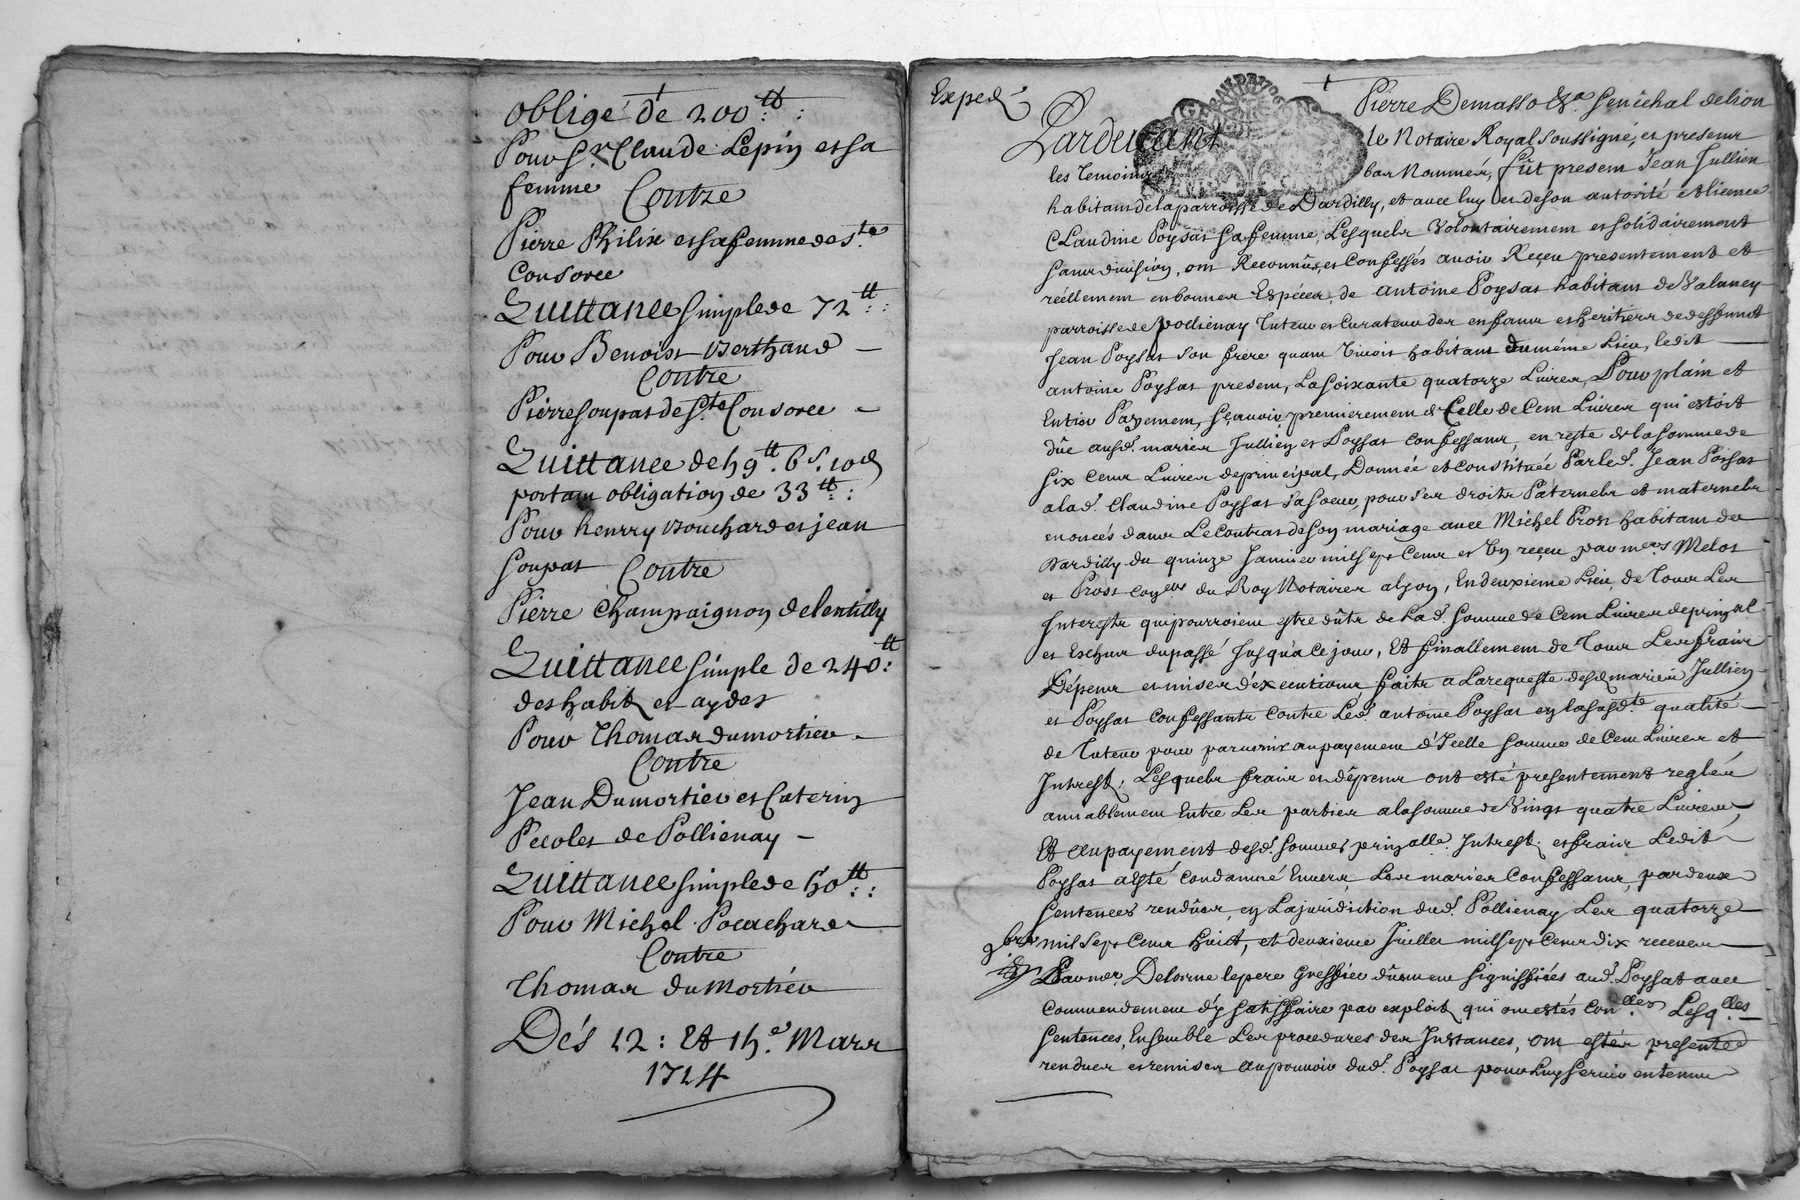 obligé de 200 tt :
Pour Sr. Claude Lepin et sa
femme Contre
Pierre Philix et sa femme de Ste
Consorce
Quittance simple de 72 tt :
Pour Benoist Berthaud –
Contre
Pierre Soupat de Ste Consorce –
Quittance de 49 tt. 6 s. 10 d
portant obligation de 33 tt :
Pour henrry Bouchard et jean
Soupat Contre
Pierre Champaignon de lentilly
Quittance simple de 240 tt :
des habitz et aydes
Pour Thomas dumortier –
Contre
Jean Dumortier et Caterin
Pecolet de Pollienay –
Quittance simple de 50 tt :
Pour Michel Pocachard
Contre
Thomas du Mortier
Dés 12 : Et 15.e Mars
1724
Exped.
Pierre Demasso &a Senéchal de lion
Pardevant le Notaire Royal soussigné, et present
les temoins bas Nommés, fût present Jean Jullien
habitant de la parroisse de Dardilly, et avec luy et de son autorité et licence
Claudine Poysat sa femme, Lesquels Volontairement et solidairement
sans division, ont Reconnûs, et Confessés avoir Reçeu presentement et
réellement en bonnes Espéces, de antoine Poysat habitant de Valancy
parroisse de pollienay Tuteur et Curateur des enfans et heritiers de deffunct
Jean Poysat son frére quant vivoit habitant du même Lieu, ledit
antoine Poysat present, La soixante quatorze Livres, Pour plain et
Entier Payement, sçavoir, premierement de Celle de Cent Livres qui estoit
dûe ausd. mariés Jullien et Poysat confessants, en reste de la somme de
six cens Livres de principal, Donnée et constituée Par led. Jean Poysat
a lad. Claudine Poysat sa soeur, pour ses droits Paternels et maternels
enoncés dans Le Contrat de son mariage avec Michel Prost habitant de
Dardilly du quinze Janvier mil sept Cens et Un reçeu par mers. Melot
et Prost Coners du Roy Notaires a lyon, En deuxieme Lieu de Tous Les
Interestz qui pourroient estre dûtz de Lad. somme de Cent Livres de prinçal
et Escheus du passé Jusqu'a Ce jour, Et finallement de Tous Les frais
Dépens et mises d'executions faitz a La requeste desd. mariés Jullien
et Poysat Confessantz contre Led. antoine Poysat en la susd.te qualité
de Tuteur pour parvenir au payement d'Icelle somme de Cent Livres et
Intrestz, Lesquels frais et dépens ont esté presentement reglés
amiablement Entre Les parties a la somme de Vingt quatre Livres,
Et au payement desd. sommes prinçalle, Intrestz et frais Ledit
Poysat a Esté condamné Envers Les mariés Confessans, par deux
sentences rendües en La juridiction dud. Pollienay Les quatorze
9bre mil sept Cens huict, et deuxieme Juillet mil sept Cens dix receues
Par mer. Delorme le pere Greffier dûement signiffiées aud. Poysat avec
Commendement d'y satisffaire par exploit qui ont estés Con.lles Lesq.lles
sentences, Ensemble Les procedures des Instances, ont estés presente.
rendues et remises au pouvoir dud. Poysat pour Luy servir en temps